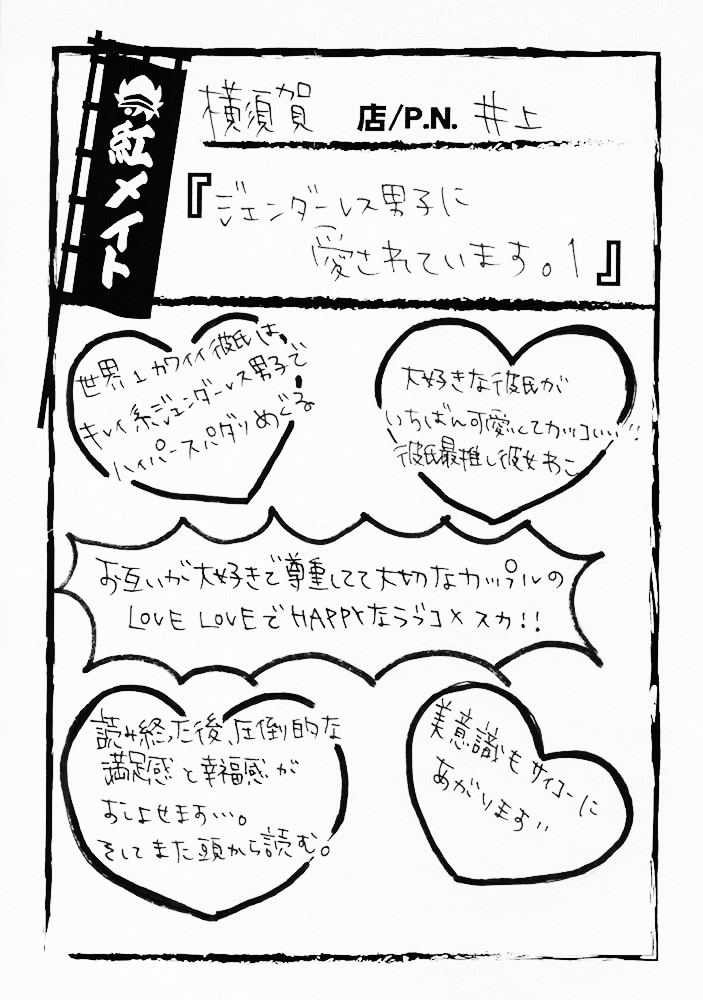 紅メイト
横須賀 店/P.N. 井上
『ジェンダーレス男子に
愛されています。1』
世界一カワイイ彼氏は、
キレイ系ジェンダーレス男子で
ハイパースパダリめぐる
大好きな彼氏が
いちばん可愛いくてカッコいい!!
彼氏最推し彼女わこ
お互いが大好きで尊重してて大切なカップルの
LOVE LOVEでHAPPYなラブコメスカ!!
読み終った後、圧倒的な
満足感と幸福感が
おしよせます…。
そしてまた頭から読む。
美意識もサイコーに
あがります!!